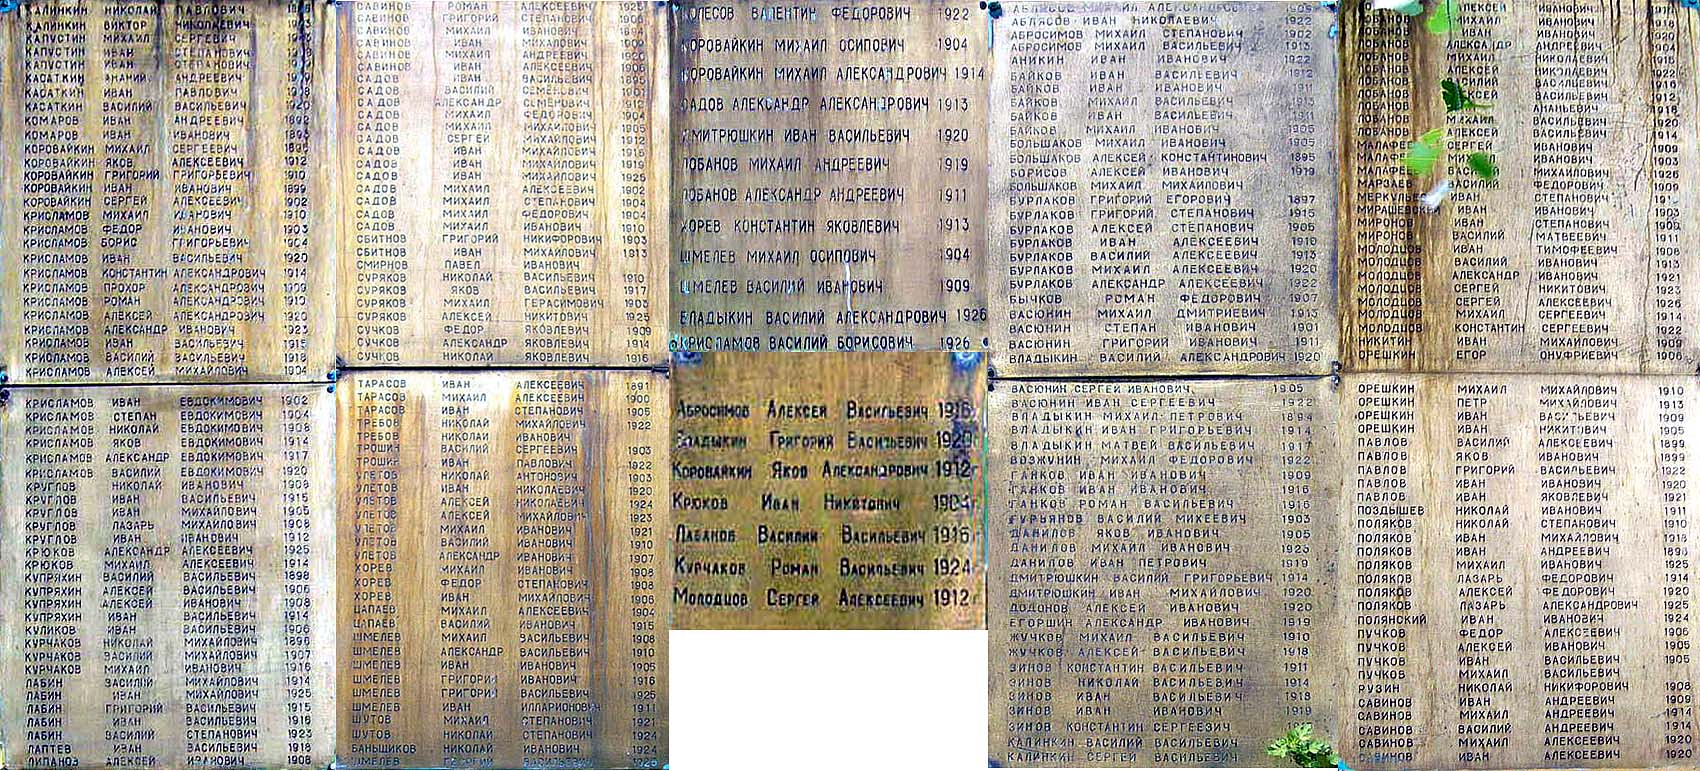 КАЛИНКИН НИКОЛАЙ ПАВЛОВИЧ
КАЛИНКИН ВИКТОР НИКОЛАЕВИЧ
КАПУСТИН МИХАИЛ СЕРГЕЕВИЧ
КАПУСТИН ИВАН СТЕПАНОВИЧ
КАПУСТИН ИВАН СТЕПАНОВИЧ
КАСАТКИН АНАНИЙ АНДРЕЕВИЧ
КАСАТКИН ИВАН ПАВЛОВИЧ
КАСАТКИН ВАСИЛИЙ ВАСИЛЬЕВИЧ 1920
КОМАРОВ ИВАН АНДРЕЕВИЧ
КОМАРОВ ИВАН ИВАНОВИЧ
КОРОВАЙКИН МИХАИЛ СЕРГЕЕВИЧ
КОРОВАЙКИН ЯКОВ АЛЕКСЕЕВИЧ 1912
КОРОВАЙКИН ГРИГОРИЙ ГРИГОРЬЕВИЧ 1910
КОРОВАЙКИН ИВАН ИВАНОВИЧ 1899
КОРОВАЙКИН СЕРГЕЙ АЛЕКСЕЕВИЧ 1902
КРИСЛАМОВ МИХАИЛ ИВАНОВИЧ 1910
КРИСЛАМОВ ФЕДОР ИВАНОВИЧ 1903
КРИСЛАМОВ БОРИС ГРИГОРЬЕВИЧ 1904
КРИСЛАМОВ ИВАН ВАСИЛЬЕВИЧ 1920
КРИСЛАМОВ КОНСТАНТИН АЛЕКСАНДРОВИЧ 1914
КРИСЛАМОВ ПРОХОР АЛЕКСАНДРОВИЧ 1909
КРИСЛАМОВ РОМАН АЛЕКСАНДРОВИЧ 1910
КРИСЛАМОВ АЛЕКСЕЙ АЛЕКСАНДРОВИЧ 1920
КРИСЛАМОВ АЛЕКСАНДР ИВАНОВИЧ 1923
КРИСЛАМОВ ИВАН ВАСИЛЬЕВИЧ 1915
КРИСЛАМОВ ВАСИЛИЙ ВАСИЛЬЕВИЧ 1918
КРИСЛАМОВ АЛЕКСЕЙ МИХАЙЛОВИЧ 1904
КРИСЛАМОВ ИВАН ЕВДОКИМОВИЧ 1902
КРИСЛАМОВ СТЕПАН ЕВДОКИМОВИЧ 1904
КРИСЛАМОВ НИКОЛАЙ ЕВДОКИМОВИЧ 1908
КРИСЛАМОВ ЯКОВ ЕВДОКИМОВИЧ 1914
КРИСЛАМОВ АЛЕКСАНДР ЕВДОКИМОВИЧ 1917
КРИСЛАМОВ ВАСИЛИЙ ЕВДОКИМОВИЧ 1920
КРУГЛОВ НИКОЛАЙ ИВАНОВИЧ 1909
КРУГЛОВ ИВАН ВАСИЛЬЕВИЧ 1915
КРУГЛОВ ИВАН МИХАЙЛОВИЧ 1905
КРУГЛОВ ЛАЗАРЬ МИХАЙЛОВИЧ 1908
КРУГЛОВ ИВАН ИВАНОВИЧ 1912
КРЮКОВ АЛЕКСАНДР АЛЕКСЕЕВИЧ 1925
КРЮКОВ МИХАИЛ АЛЕКСЕЕВИЧ 1914
КУПРЯХИН ВАСИЛИЙ ВАСИЛЬЕВИЧ 1898
КУПРЯХИН АЛЕКСЕЙ ВАСИЛЬЕВИЧ 1906
КУПРЯХИН АЛЕКСЕЙ ИВАНОВИЧ 1908
КУПРЯХИН ИВАН ВАСИЛЬЕВИЧ 1914
КУЛИКОВ ИВАН ВАСИЛЬЕВИЧ 1906
КУРЧАКОВ НИКОЛАЙ МИХАЙЛОВИЧ 1896
КУРЧАКОВ ВАСИЛИЙ МИХАЙЛОВИЧ 1907
КУРЧАКОВ МИХАИЛ ИВАНОВИЧ 1916
ЛАБИН ВАСИЛИЙ МИХАЙЛОВИЧ 1914
ЛАБИН ИВАН МИХАЙЛОВИЧ 1925
ЛАБИН ГРИГОРИЙ ВАСИЛЬЕВИЧ 1915
ЛАБИН ИВАН ВАСИЛЬЕВИЧ 1918
ЛАБИН ВАСИЛИЙ СТЕПАНОВИЧ 1923
ЛАПТЕВ ИВАН ВАСИЛЬЕВИЧ 1918
ЛИПАНОВ АЛЕКСЕЙ ИВАНОВИЧ 1908
САВИНОВ РОМАН АЛЕКСЕЕВИЧ 1925
САВИНОВ ГРИГОРИЙ СТЕПАНОВИЧ
САВИНОВ МИХАИЛ ИВАНОВИЧ 1894
САВИНОВ ИВАН МИХАЙЛОВИЧ 1909
САВИНОВ МИХАИЛ АНДРЕЕВИЧ 1920
САВИНОВ ИВАН АЛЕКСЕЕВИЧ 1906
САДОВ ИВАН ВАСИЛЬЕВИЧ 1895
САДОВ ВАСИЛИЙ СЕМЕНОВИЧ 1901
САДОВ АЛЕКСАНДР СЕМЕНОВИЧ
САДОВ МИХАИЛ ФЕДОРОВИЧ 1904
САДОВ МИХАИЛ МИХАЙЛОВИЧ 1905
САДОВ СЕРГЕЙ МИХАЙЛОВИЧ 1912
САДОВ ИВАН МИХАЙЛОВИЧ 1916
САДОВ ИВАН МИХАЙЛОВИЧ 1919
САДОВ ИВАН МИХАЙЛОВИЧ 1925
САДОВ МИХАИЛ АЛЕКСЕЕВИЧ 1902
САДОВ МИХАИЛ СТЕПАНОВИЧ 1904
САДОВ МИХАИЛ ФЕДОРОВИЧ 1904
САДОВ МИХАИЛ ИВАНОВИЧ 1910
СБИТНОВ ГРИГОРИЙ НИКИФОРОВИЧ 1903
СБИТНОВ ИВАН МИХАЙЛОВИЧ 1913
СМИРНОВ ПАВЕЛ ИВАНОВИЧ
СУРЯКОВ НИКОЛАЙ ВАСИЛЬЕВИЧ 1910
СУРЯКОВ ЯКОВ ВАСИЛЬЕВИЧ 1917
СУРЯКОВ МИХАИЛ ГЕРАСИМОВИЧ 1903
СУРЯКОВ АЛЕКСЕЙ НИКИТОВИЧ 1925
СУЧКОВ ФЕДОР ЯКОВЛЕВИЧ 1909
СУЧКОВ АЛЕКСАНДР ЯКОВЛЕВИЧ 1914
СУЧКОВ НИКОЛАЙ ЯКОВЛЕВИЧ 1916
ТАРАСОВ ИВАН АЛЕКСЕЕВИЧ 1891
ТАРАСОВ МИХАИЛ АЛЕКСЕЕВИЧ 1900
ТАРАСОВ ИВАН СТЕПАНОВИЧ 1905
ТРЕБОВ НИКОЛАЙ МИХАЙЛОВИЧ 1922
ТРЕБОВ НИКОЛАЙ ИВАНОВИЧ
ТРОШИН ВАСИЛИЙ СЕРГЕЕВИЧ 1903
ТРОШИН ИВАН ПАВЛОВИЧ 1922
УЛЕТОВ НИКОЛАЙ АНТОНОВИЧ 1903
УЛЕТОВ ИВАН НИКОЛАЕВИЧ 1920
УЛЕТОВ АЛЕКСЕЙ НИКОЛАЕВИЧ 1924
УЛЕТОВ АЛЕКСЕЙ МИХАЙЛОВИЧ 1923
УЛЕТОВ МИХАИЛ ИВАНОВИЧ 1921
УЛЕТОВ ВАСИЛИЙ ИВАНОВИЧ 1910
УЛЕТОВ АЛЕКСАНДР ИВАНОВИЧ 1907
ХОРЕВ МИХАИЛ ИВАНОВИЧ 1908
ХОРЕВ ФЕДОР СТЕПАНОВИЧ 1908
ХОРЕВ ИВАН МИХАЙЛОВИЧ 1906
ЦАПАЕВ МИХАИЛ АЛЕКСЕЕВИЧ 1904
ЦАПАЕВ ВАСИЛИЙ ИВАНОВИЧ 1915
ШМЕЛЕВ МИХАИЛ ВАСИЛЬЕВИЧ 1908
ШМЕЛЕВ АЛЕКСАНДР ВАСИЛЬЕВИЧ 1910
ШМЕЛЕВ ИВАН ИВАНОВИЧ 1905
ШМЕЛЕВ ГРИГОРИЙ ИВАНОВИЧ 1916
ШМЕЛЕВ ГРИГОРИЙ ВАСИЛЬЕВИЧ 1925
ШМЕЛЕВ ИВАН ИЛЛАРИОНОВИЧ 1911
ШУТОВ МИХАИЛ СТЕПАНОВИЧ 1921
ШУТОВ НИКОЛАЙ СТЕПАНОВИЧ 1924
БАНЬЩИКОВ НИКОЛАЙ ИВАНОВИЧ 1924
ШМЕЛЕВ ГЕОРГИЙ ВАСИЛЬЕВИЧ
КОЛЕСОВ ВАЛЕНТИН ФЕДОРОВИЧ 1922
КОРОВАЙКИН МИХАИЛ ОСИПОВИЧ 1904
КОРОВАЙКИН МИХАИЛ АЛЕКСАНДРОВИЧ 1914
САДОВ АЛЕКСАНДР АЛЕКСАНДРОВИЧ 1913
ДМИТРЮШКИН ИВАН ВАСИЛЬЕВИЧ 1920
ЛОБАНОВ МИХАИЛ АНДРЕЕВИЧ 1919
ЛОБАНОВ АЛЕКСАНДР АНДРЕЕВИЧ 1911
ХОРЕВ КОНСТАНТИН ЯКОВЛЕВИЧ 1913
ШМЕЛЕВ МИХАИЛ ОСИПОВИЧ 1904
ШМЕЛЕВ ВАСИЛИЙ ИВАНОВИЧ 1909
ВЛАДЫКИН ВАСИЛИЙ АЛЕКСАНДРОВИЧ 1926
КРИСЛАМОВ ВАСИЛИЙ БОРИСОВИЧ 1926
АБРОСИМОВ АЛЕКСЕЙ ВАСИЛЬЕВИЧ 1916
ВЛАДЫКИН ГРИГОРИЙ ВАСИЛЬЕВИЧ 1920
КОРОВАЙКИН ЯКОВ АЛЕКСАНДРОВИЧ 1912г
КРЮКОВ ИВАН НИКИТОВИЧ 1904г
ЛАБАНОВ ВАСИЛИЙ ВАСИЛЬЕВИЧ 1916г
КУРЧАКОВ РОМАН ВАСИЛЬЕВИЧ 1924г
МОЛОДЦОВ СЕРГЕЙ АЛЕКСЕЕВИЧ 1912г
АБЛЯСОВ МИХАИЛ АЛЕКСАНДРОВИЧ
АБЛЯСОВ ИВАН НИКОЛАЕВИЧ 1922
АБРОСИМОВ МИХАИЛ СТЕПАНОВИЧ 1902
АБРОСИМОВ МИХАИЛ ВАСИЛЬЕВИЧ 1913
АНИКИН ИВАН ИВАНОВИЧ 1922
БАЙКОВ ИВАН ВАСИЛЬЕВИЧ 1912
БАЙКОВ ИВАН ИВАНОВИЧ 1911
БАЙКОВ МИХАИЛ ВАСИЛЬЕВИЧ
БАЙКОВ ИВАН ИВАНОВИЧ 1911
БАЙКОВ МИХАИЛ ИВАНОВИЧ 1905
БОЛЬШАКОВ МИХАИЛ МИХАЙЛОВИЧ 1905
БОЛЬШАКОВ АЛЕКСЕЙ КОНСТАНТИНОВИЧ 1895
БОРИСОВ АЛЕКСЕЙ ИВАНОВИЧ 1919
БОЛЬШАКОВ МИХАИЛ МИХАЙЛОВИЧ
БУРЛАКОВ ГРИГОРИЙ ЕГОРОВИЧ 1897
БУРЛАКОВ ГРИГОРИЙ СТЕПАНОВИЧ 1915
БУРЛАКОВ АЛЕКСЕЙ СТЕПАНОВИЧ 1905
БУРЛАКОВ ИВАН АЛЕКСЕЕВИЧ 1910
БУРЛАКОВ ВАСИЛИЙ АЛЕКСЕЕВИЧ 1913
БУРЛАКОВ МИХАИЛ АЛЕКСЕЕВИЧ 1920
БУРЛАКОВ АЛЕКСАНДР АЛЕКСЕЕВИЧ 1922
БЫЧКОВ РОМАН ФЕДОРОВИЧ 1907
ВАСЮНИН МИХАИЛ ДМИТРИЕВИЧ 1913
ВАСЮНИН СТЕПАН ИВАНОВИЧ 1901
ВЛАДЫКИН ВАСИЛИЙ АЛЕКСАНДРОВИЧ 1920
ВАСЮНИН СЕРГЕЙ ИВАНОВИЧ 1905
ВАСЮНИН ИВАН СЕРГЕЕВИЧ 1922
ВЛАДЫКИН МИХАИЛ ПЕТРОВИЧ 1894
ВЛАДЫКИН ИВАН ГРИГОРЬЕВИЧ 1914
ВЛАДЫКИН МАТВЕЙ ВАСИЛЬЕВИЧ 1917
ВОЗЖУНИН МИХАИЛ ФЕДОРОВИЧ 1922
ГАНКОВ ИВАН ИВАНОВИЧ 1909
ГАНКОВ ИВАН ИВАНОВИЧ 1916
ГАНКОВ РОМАН ВАСИЛЬЕВИЧ 1916
ГУРЬЯНОВ ВАСИЛИЙ МИХЕЕВИЧ 1903
ДАНИЛОВ ЯКОВ ИВАНОВИЧ 1905
ДАНИЛОВ МИХАИЛ ИВАНОВИЧ
ДАНИЛОВ ИВАН ПЕТРОВИЧ 1919
ДМИТРЮШКИН ВАСИЛИЙ ГРИГОРЬЕВИЧ 1914
ДМИТРЮШКИН ИВАН МИХАЙЛОВИЧ 1920
ДОДОНОВ АЛЕКСЕЙ ИВАНОВИЧ 1920
ЕГОРШИН АЛЕКСАНДР ИВАНОВИЧ 1919
ЖУЧКОВ МИХАИЛ ВАСИЛЬЕВИЧ 1910
ЖУЧКОВ АЛЕКСЕЙ ВАСИЛЬЕВИЧ 1918
ЗИНОВ КОНСТАНТИН ВАСИЛЬЕВИЧ 1911
ЗИНОВ НИКОЛАЙ ВАСИЛЬЕВИЧ 1914
ЗИНОВ ИВАН ВАСИЛЬЕВИЧ 1918
ЗИНОВ ИВАН ИВАНОВИЧ 1919
ЗИНОВ КОНСТАНТИН СЕРГЕЕВИЧ
КАЛИНКИН ВАСИЛИЙ ВАСИЛЬЕВИЧ
КАЛИНКИН СЕРГЕЙ ВАСИЛЬЕВИЧ
АЛЕКСЕЙ ИВАНОВИЧ
ЛОБАНОВ НИКОЛАЙ
ЛОБАНОВ ИВАН
ЛОБАНОВ АЛЕКСАНДР АНДРЕЕВИЧ
ЛОБАНОВ МИХАИЛ НИКОЛАЕВИЧ
ЛОБАНОВ АЛЕКСЕЙ НИКОЛАЕВИЧ 1922
ЛОБАНОВ ВАСИЛИЙ ВАСИЛЬЕВИЧ 1916
ЛОБАНОВ ИВАНОВИЧ 1912
ЛОБАНОВ АНАНЬЕВИЧ 1918
ЛОБАНОВ МИХАИЛ ВАСИЛЬЕВИЧ 1920
ЛОБАНОВ АЛЕКСЕЙ ВАСИЛЬЕВИЧ 1914
СЕРГЕЙ ИВАНОВИЧ 1909
ИВАНОВИЧ 1903
МИХАЙЛОВИЧ 1926
ВАСИЛИЙ ФЕДОРОВИЧ 1909
ИВАН СТЕПАНОВИЧ
ИВАН ИВАНОВИЧ 1903
МИРОНОВ ИВАН ИВАНОВИЧ 1909
МИРОНОВ ВАСИЛИЙ МАТВЕЕВИЧ 1911
МОЛОДЦОВ ИВАН ТИМОФЕЕВИЧ 1908
МОЛОДЦОВ ВАСИЛИЙ ИВАНОВИЧ 1913
МОЛОДЦОВ АЛЕКСАНДР ИВАНОВИЧ 1921
МОЛОДЦОВ СЕРГЕЙ НИКИТОВИЧ 1923
МОЛОДЦОВ СЕРГЕЙ АЛЕКСЕЕВИЧ 1926
МОЛОДЦОВ МИХАИЛ СЕРГЕЕВИЧ 1914
МОЛОДЦОВ КОНСТАНТИН СЕРГЕЕВИЧ 1922
НИКИТИН ИВАН ИВАНОВИЧ 1909
ОРЕШКИН ЕГОР ОНУФРИЕВИЧ 1906
ОРЕШКИН МИХАИЛ МИХАЙЛОВИЧ 1910
ОРЕШКИН ПЕТР МИХАЙЛОВИЧ 1913
ОРЕШКИН ИВАН ВАСИЛЬЕВИЧ 1909
ОРЕШКИН ИВАН НИКИТОВИЧ 1905
ПАВЛОВ ВАСИЛИЙ АЛЕКСЕЕВИЧ 1899
ПАВЛОВ ЯКОВ ИВАНОВИЧ 1899
ПАВЛОВ ГРИГОРИЙ ВАСИЛЬЕВИЧ 1922
ПАВЛОВ ИВАН ИВАНОВИЧ 1920
ПАВЛОВ ИВАН ЯКОВЛЕВИЧ 1921
ПОЗДЫШЕВ НИКОЛАЙ ИВАНОВИЧ 1911
ПОЛЯКОВ НИКОЛАЙ СТЕПАНОВИЧ 1910
ПОЛЯКОВ ИВАН МИХАЙЛОВИЧ 1918
ПОЛЯКОВ ИВАН АНДРЕЕВИЧ
ПОЛЯКОВ МИХАИЛ ИВАНОВИЧ 1925
ПОЛЯКОВ ЛАЗАРЬ ФЕДОРОВИЧ 1914
ПОЛЯКОВ АЛЕКСЕЙ ФЕДОРОВИЧ 1920
ПОЛЯКОВ ЛАЗАРЬ АЛЕКСАНДРОВИЧ 1925
ПОЛЯНСКИЙ ИВАН ИВАНОВИЧ 1924
ПУЧКОВ ФЕДОР АЛЕКСЕЕВИЧ 1905
ПУЧКОВ АЛЕКСЕЙ ИВАНОВИЧ 1906
ПУЧКОВ ИВАН ВАСИЛЬЕВИЧ 1905
ПУЧКОВ МИХАИЛ ВАСИЛЬЕВИЧ
РУЗИН НИКОЛАЙ НИКИФОРОВИЧ 1908
САВИНОВ ИВАН АНДРЕЕВИЧ 1909
САВИНОВ МИХАИЛ АНДРЕЕВИЧ 1914
САВИНОВ ИВАН АНДРЕЕВИЧ 1914
САВИНОВ МИХАИЛ АЛЕКСЕЕВИЧ 1920
САВИНОВ ИВАН АЛЕКСЕЕВИЧ 1920